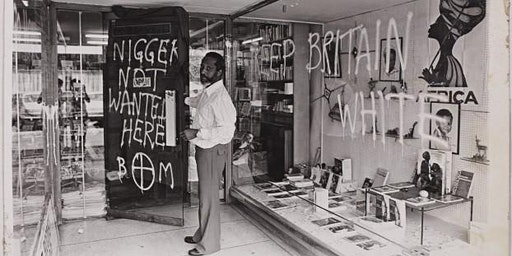 NIGGER
NOT
WANTED
HERE
BM
KEEP BRITAIN
WHITE
AFRICA